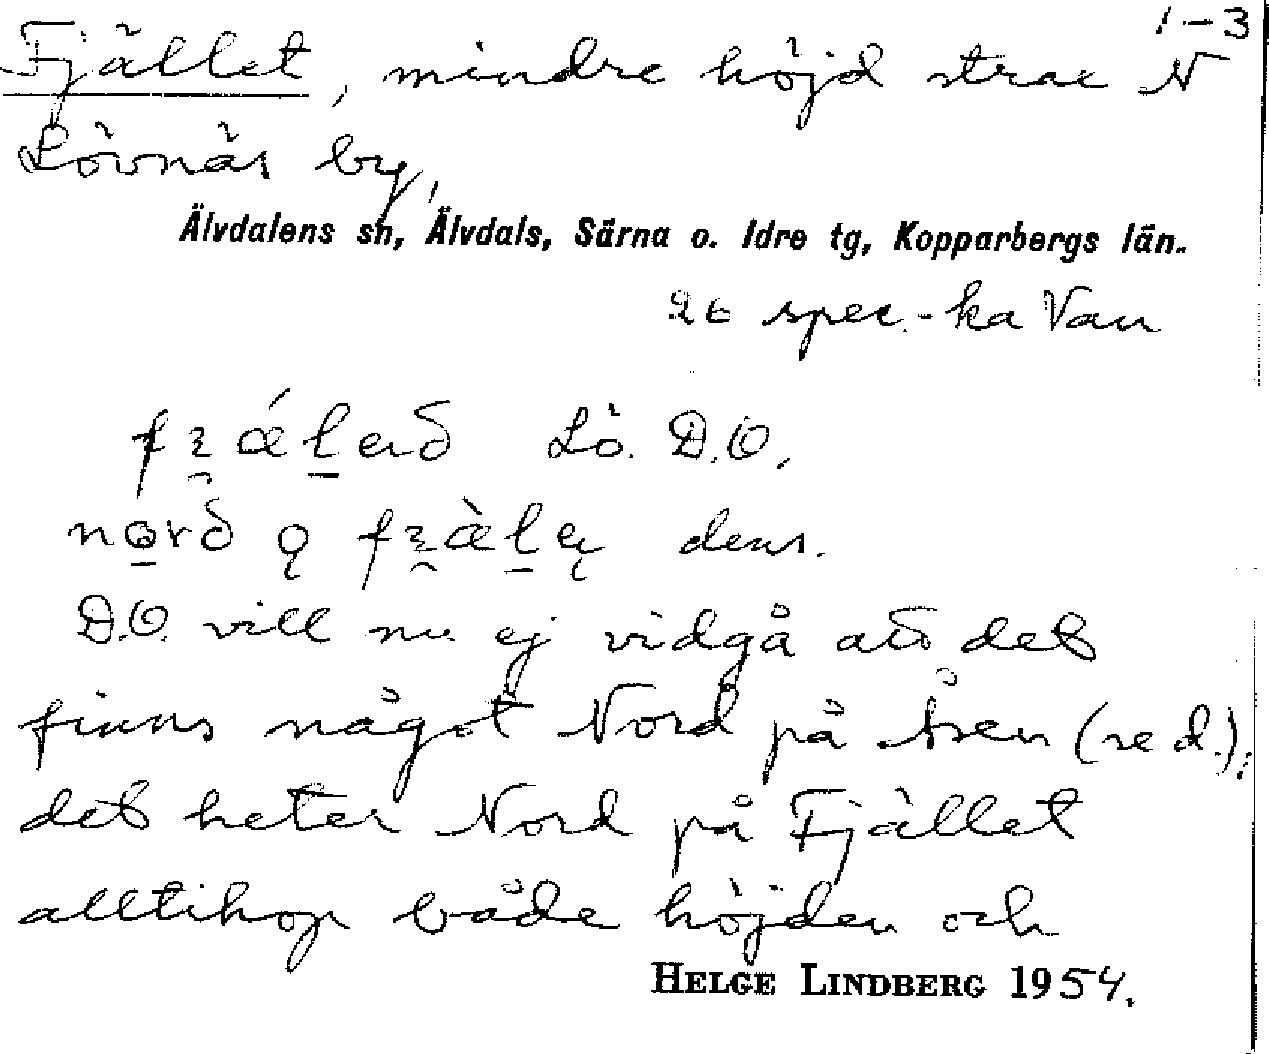 1-3
Fjället, mindre höjd strax N
Lövnäs by,
Älvdalens sn, Älvdals, Särna o. Idre tg, Kopparbergs län.
se spec.-ka Van
Lö. D.O.
dens.
D.O. vill nu ej vidgå att det
finns något Nord på Åsen (se d.);
det heter Nord på Fjället
alltihop både höjden och
HELGE LINDBERG 1954.